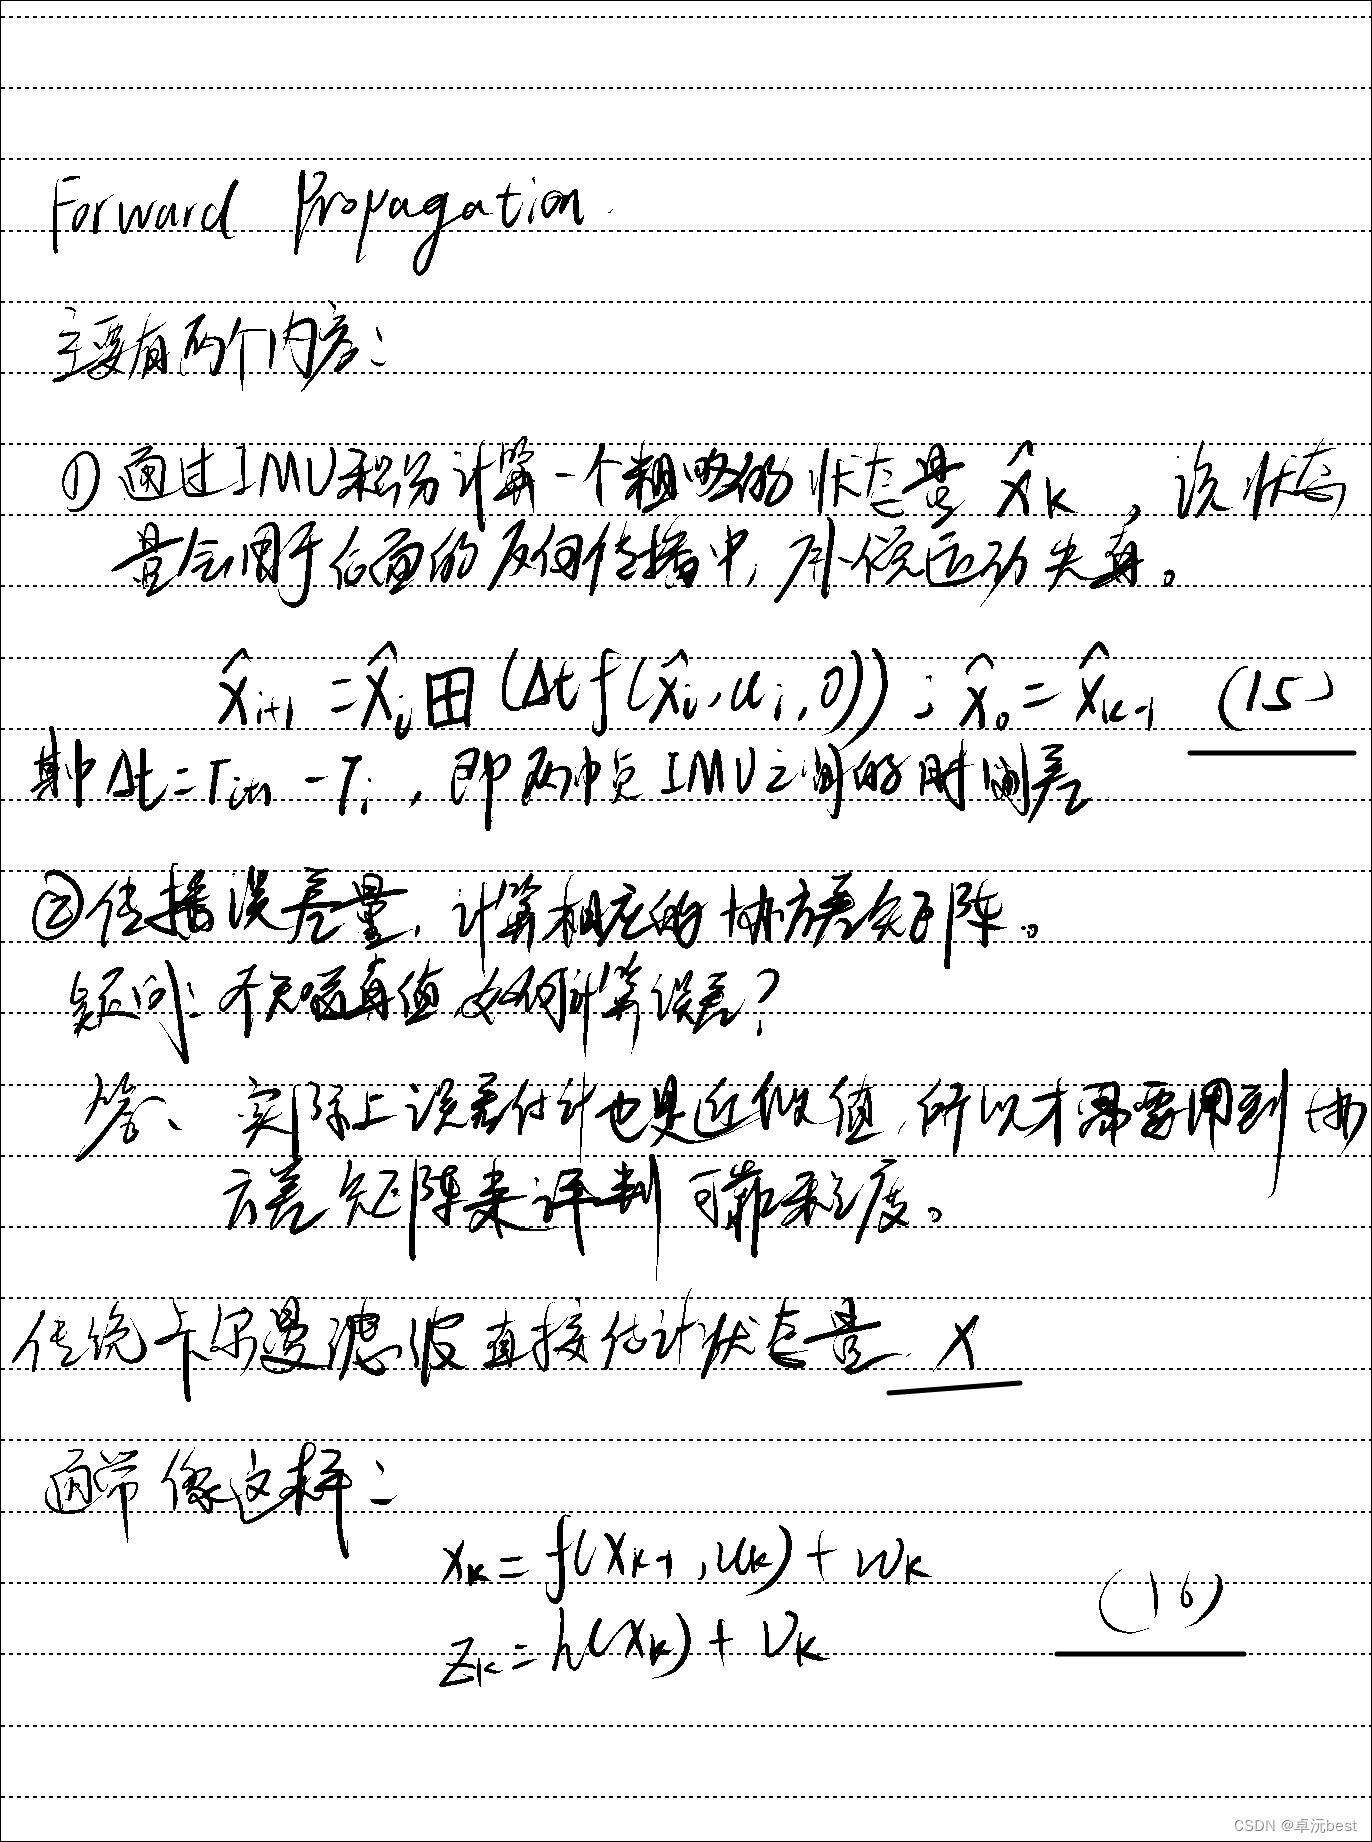 Forward Propagation.
主要有两个内容：
① 通过IMU积分计算一个粗略的状态量 x̂_k ，该状态
量会用于后面的反向传播中，补偿运动失真。
x̂_{i+1} = x̂_i ⊞ (Δt f(x̂_i, u_i, 0)) ; x̂_0 = x̂_{k-1} (15)
其中 Δt = τ_{i+1} - τ_i , 即两帧IMU之间的时间差
② 传播误差量，计算相应的协方差矩阵。
疑问：不知道真值，如何计算误差？
答、实际上误差估计也是近似值，所以才需要用到协
方差矩阵来评判可靠程度。
传统卡尔曼滤波直接估计状态量 x
通常像这样：
x_k = f(x_{k-1}, u_k) + w_k
(16)
z_k = h(x_k) + v_k
CSDN @卓沅best